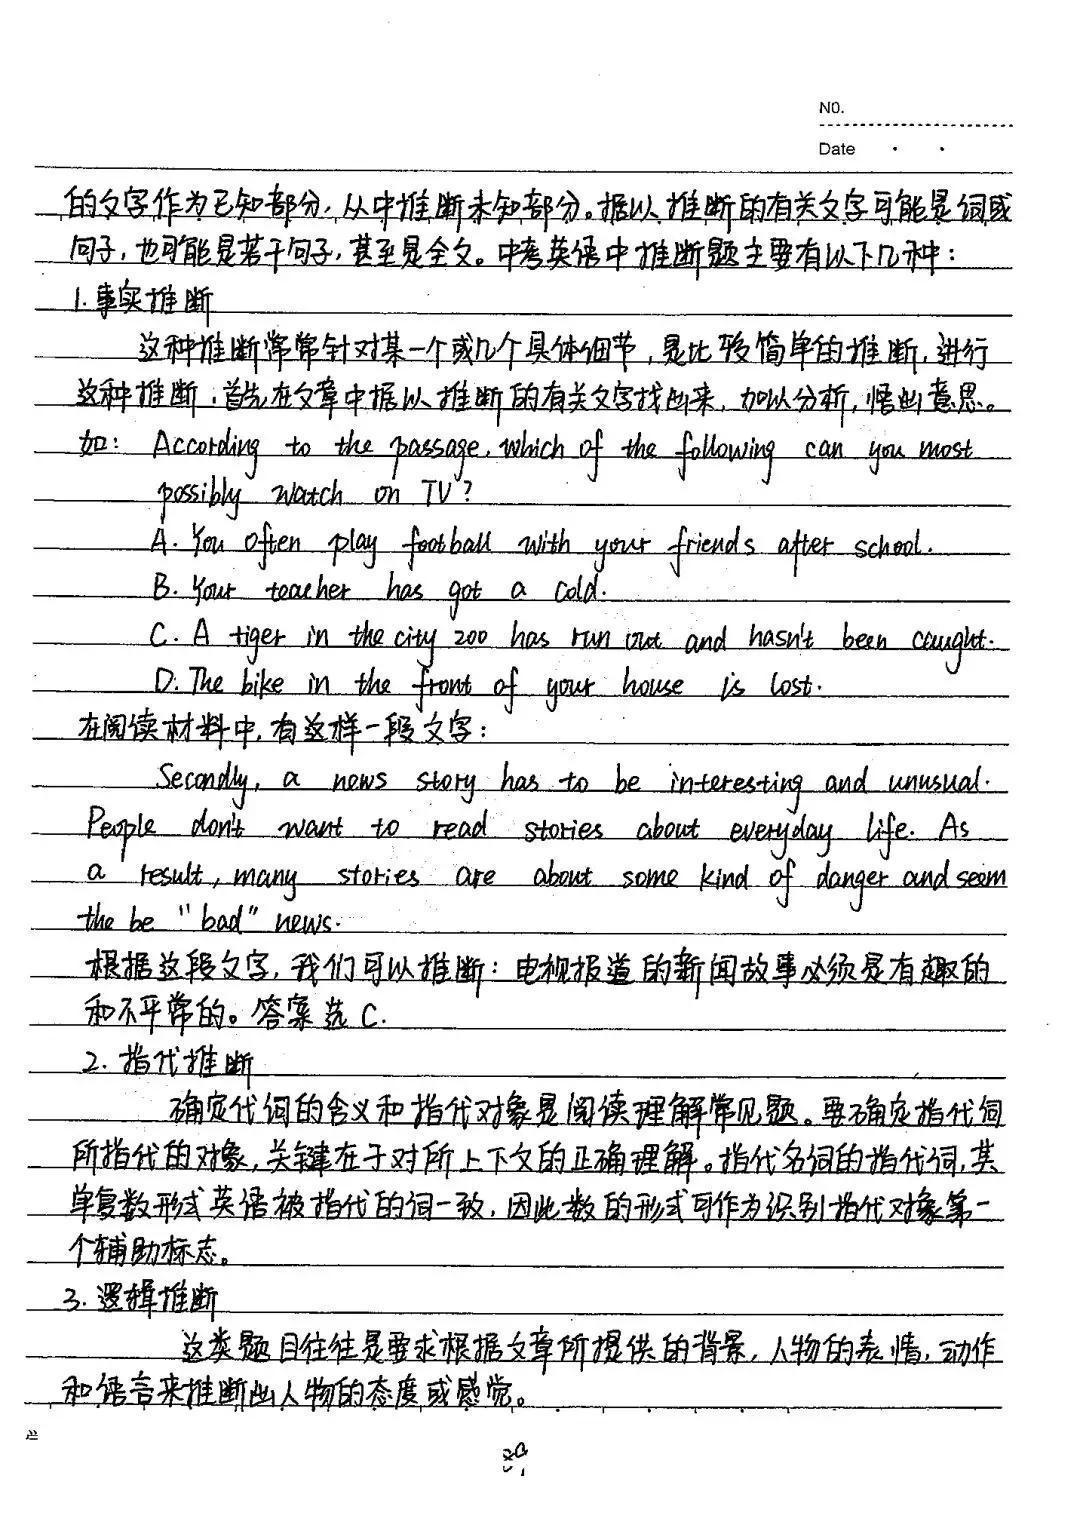 NO.
Date
的文字作为已知部分,从中推断未知部分。据以推断的有关文字可能是词或
句子,也可能是若干句子,甚至是全文。中考英语中推断题主要有以下几种:
1.事实推断
这种推断常常针对某一个或几个具体细节,是比较简单的推断,进行
这种推断,首先在文章中据以推断的有关文字找出来,加以分析,悟出意思。
如: According to the passage, which of the following can you most
possibly watch on TV?
A. You often play football with your friends after school.
B. Your teacher has got a cold.
C. A tiger in the city zoo has run out and hasn't been caught.
D. The bike in the front of your house is lost.
在阅读材料中,有这样一段文字:
Secondly, a news story has to be interesting and unusual.
People don't want to read stories about everyday life. As
a result, many stories are about some kind of danger and seem
the be "bad" news.
根据这段文字,我们可以推断:电视报道的新闻故事必须是有趣的
和不平常的。答案选C.
2. 指代推断
确定代词的含义和指代对象是阅读理解常见题。要确定指代词
所指代的对象,关键在于对所上下文的正确理解。指代名词的指代词,其
单复数形式英语被指代的词一致,因此数的形式可作为识别指代对象第一
个辅助标志。
3. 逻辑推断
这类题目往往是要求根据文章所提供的背景,人物的表情,动作
和语言来推断出人物的态度或感觉。